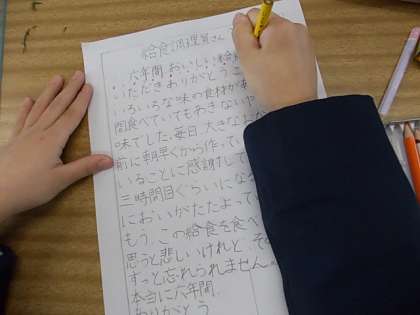 給食調理員さん
六年間おいしい給食
いただきありがとうご
いろいろな味の食材が
間食べていてもあきない
味でした。毎日、大きな
前に朝早くから作って
いることに感謝して
三時間目ぐらいにな
においがただよって
もう、この給食を食べ
思うと悲しいけれど、その
ずっと忘れられません。
本当に六年間、
ありがとう